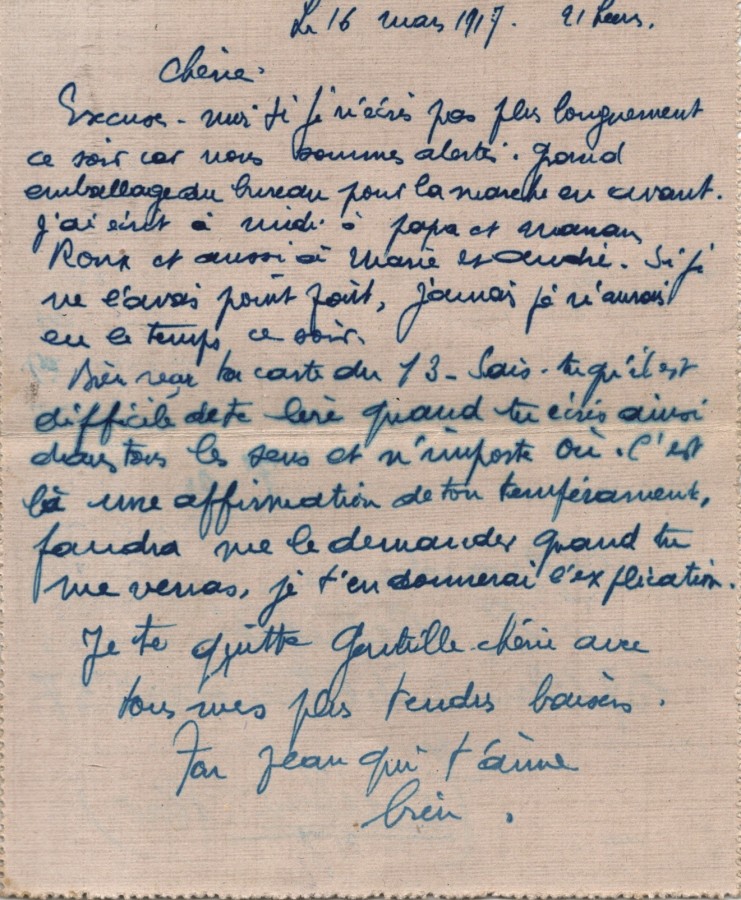 Le 16 mars 1917. 21 heures.
Chérie.
Excuse-moi si je n'écris pas plus longuement
ce soir car nous sommes alertés. Grand
emballage du bureau pour la marche en avant.
J'ai écrit à midi à papa et maman
Roux et aussi à Marie et André. Si je
ne l'avais point fait, jamais je n'aurais
eu le temps ce soir.
Bien reçu ta carte du 13 - Sais-tu qu'il est
difficile de te lire quand tu écris ainsi
dans tous les sens et n'importe où. C'est
là une affirmation de ton tempérament,
faudra me le demander quand tu
me verras, je t'en donnerai l'explication.
Je te quitte gentille chérie avec
tous mes plus tendres baisers.
Ton Jean qui t'aime
bien.